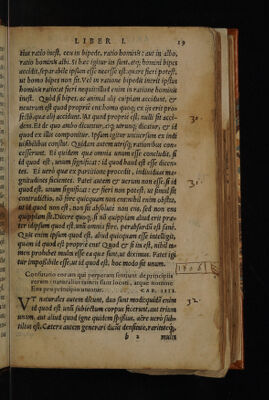 LIBER I. 19
tius ratio inest. ceu in bipede, ratio hominis: aut in albo,
ratio hominis albi. Si hæc igitur ita sunt, atq; homini bipes
accidit, separabile ipsum esse necesse est: quare fieri potest,
ut homo bipes non sit. Vel in ratione bipedis inerit ipsius
hominis ratio: at fieri nequit: illud enim in ratione hominis
inest. Quòd si bipes, ac animal alij cuipiam accidunt, &
neutrum est quod propriè ens: homo quoq; ex ijs erit pro-
fectò, quæ alij accidunt. At quod propriè est, nulli sit acci-
dens. Et de quo ambo dicuntur, atq; utrunq; dicatur, & id
quod ex illis componitur. Ipsum igitur uniuersum ex indi
uisibilibus constat. Quidam autem utrisq; rationibus con-
cesserunt. Ei quidem quæ omnia unum esse concludit, si
id quod est, unum significat: id quod haud est esse dicen-
tes. Ei uerò quæ ex partitione procedit, indiuiduas ma-
gnitudines facientes. Patet autem & uerum non esse, si id
quod est, unum significat: & fieri non potest, ut simul sit
contradictio, nō fore quicquam non ens: nihil enim obstat,
ut id quod non est, non sit absolutè non ens, sed non ens
quippiam sit. Dicere quoq; si nō quippiam aliud erit præ-
ter id ipsum quod est, unū omnia fore, perabsurdū est sanè.
Quis enim ipsum quod est, aliud quicquam esse intelligit,
quàm id quod propriè ens est? Quòd & si ita est, nihil ta-
men prohibet multa esse ea quæ sunt, ut diximus. Patet igi
tur impossibile esse, ut id quod est, hoc modo sit unum.
Confutatio eorum qui perperam sentiunt de principijs
rerum naturalium tametsi sunt locuti, atque nomine
Ens pro principio utuntur. CAP. IIII.
VT naturales autem dicunt, duo sunt modi: quidā enim
id quod est unū subiectum corpus fecerunt, aut trium
unum, aut aliud quod igne quidem spissius, aëre uerò sub-
tilius est. Cætera autem generari dicūt densitate, raritateq;,
b 2 multa
30.
31.
32.